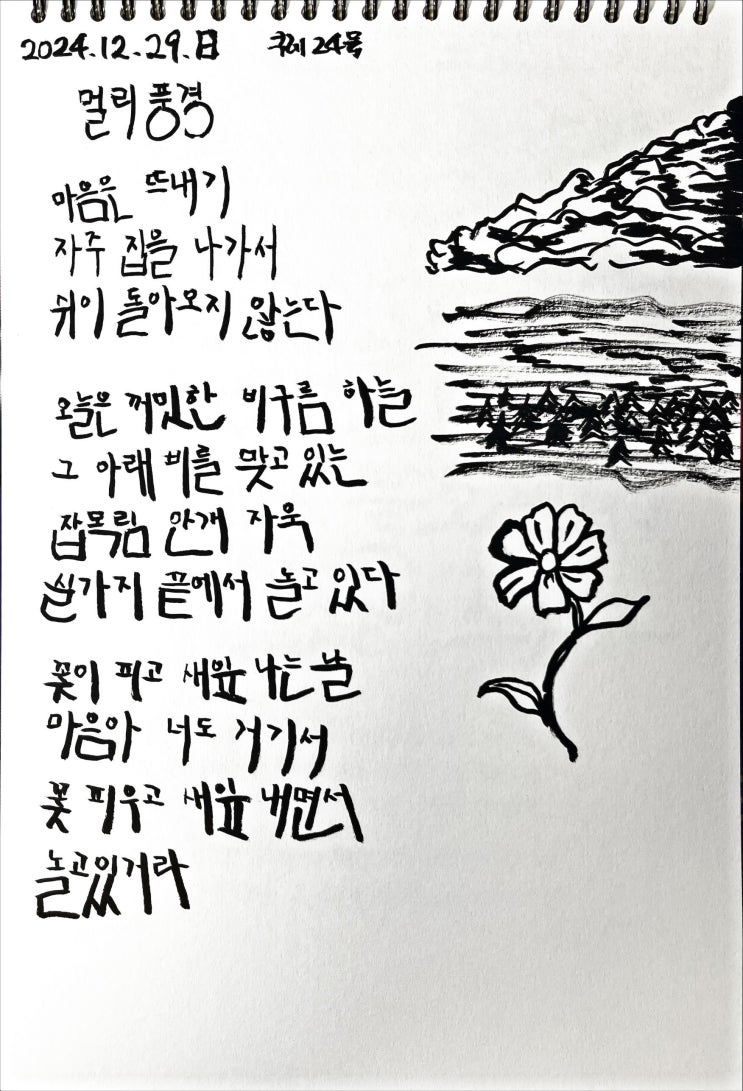 2024.12.29.日 쿠레 24목
멀리 풍경
마음은 뜨내기
자주 집을 나가서
쉬이 돌아오지 않는다
오늘은 꺼밋한 비구름 하늘
그 아래 비를 맞고 있는
잡목림 안개 자욱
실가지 끝에서 놀고 있다
꽃이 피고 새잎 나는 날
마음아 너도 거기서
꽃 피우고 새잎 내면서
놀고있거라